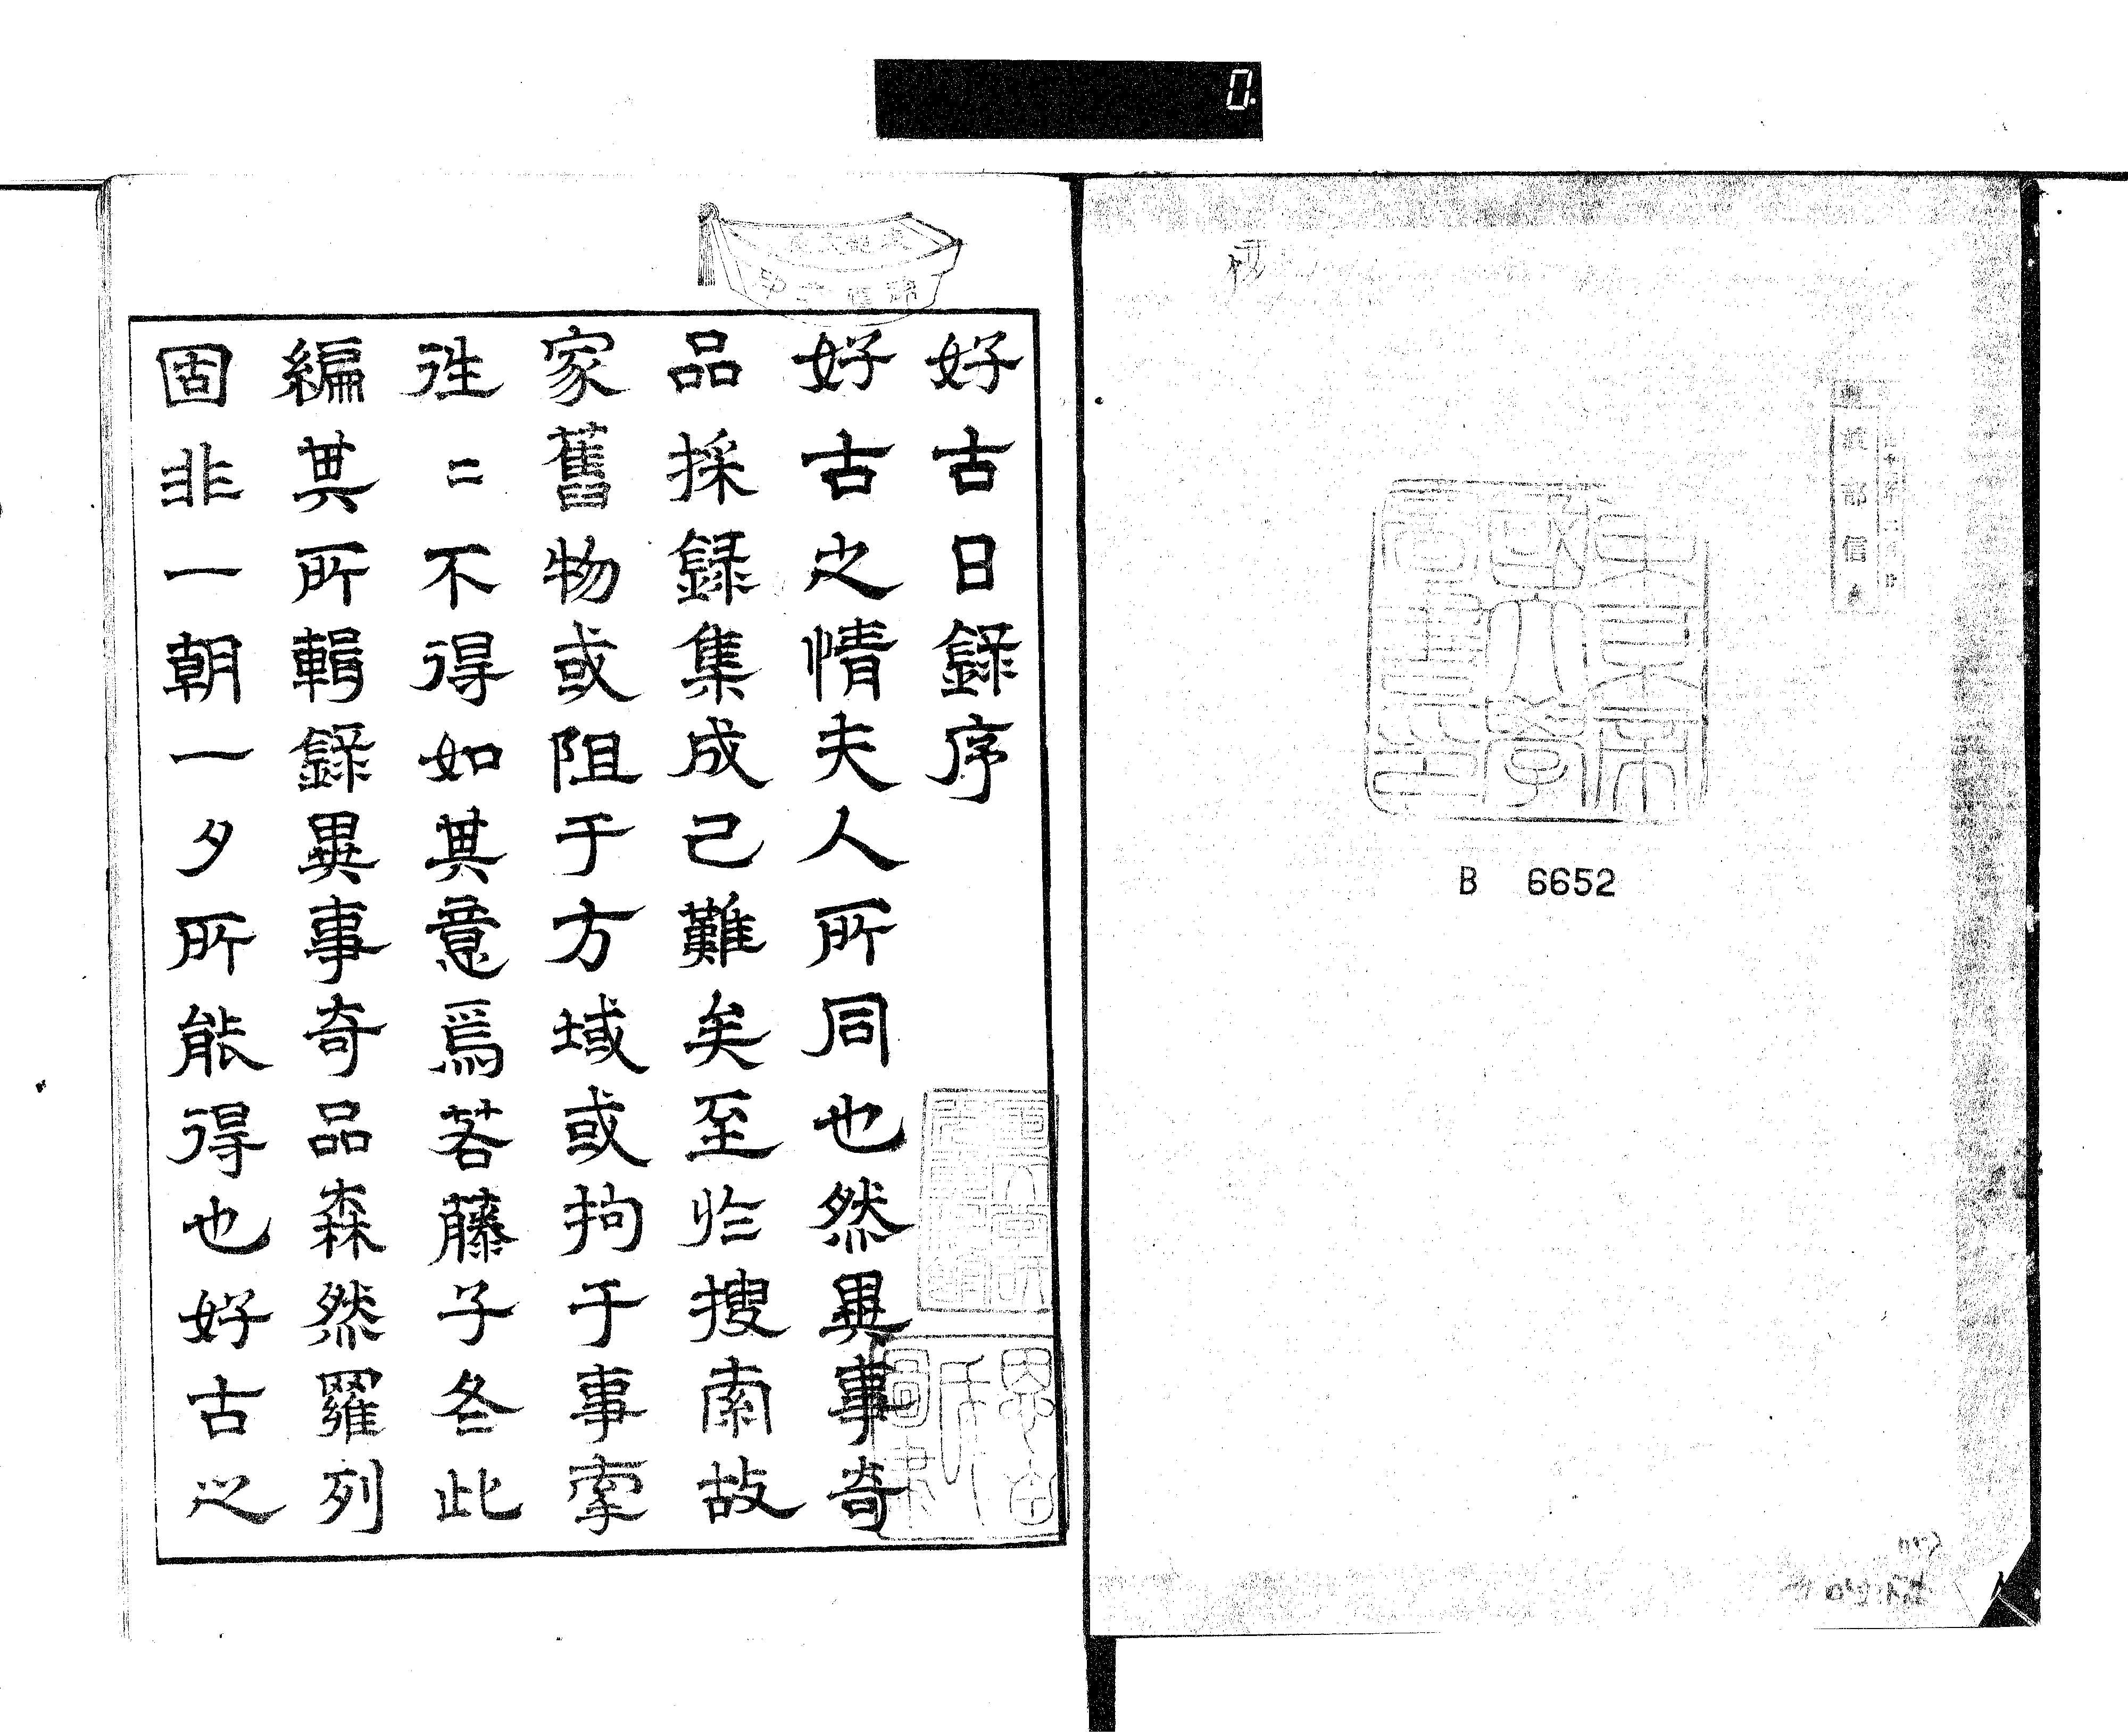 東京帝國大學圖書印
B 6652
好古日錄序
好古之情夫人所同也然異事奇
品採錄集成已難矣至於搜索故
家舊物或阻于方域或拘于事牽
往二不得如其意焉若藤子冬此
編其所輯錄異事奇品森然羅列
固非一朝一夕所能得也好古之